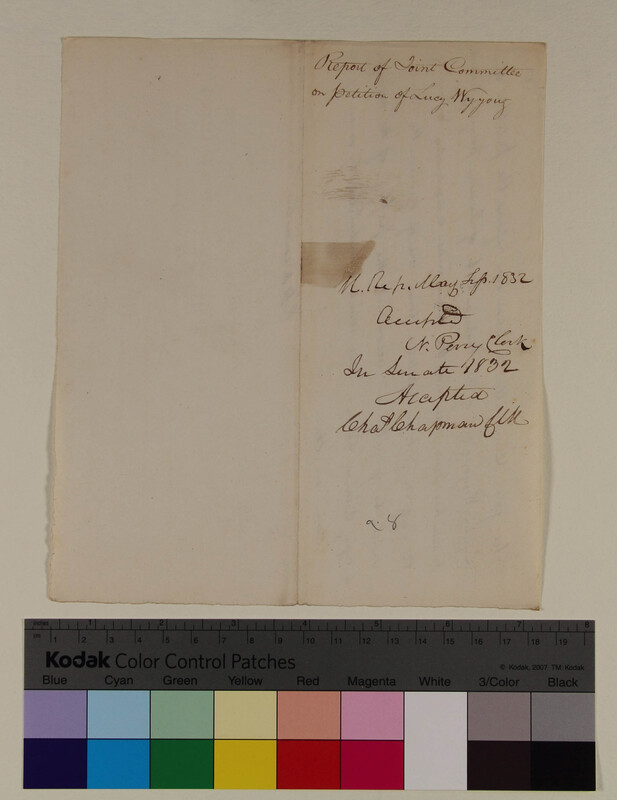 Report of Joint Committee
on petition of Lucy Wyyoug
H. Rep. May Sess. 1832
Accepted
N. Perry Clerk
In Senate 1832
Accepted
Chas Chapman Clk
28
inches 1 2 3 4 5 6 7 8
cm 1 2 3 4 5 6 7 8 9 10 11 12 13 14 15 16 17 18 19
Kodak Color Control Patches
© Kodak, 2007 TM: Kodak
Blue Cyan Green Yellow Red Magenta White 3/Color Black